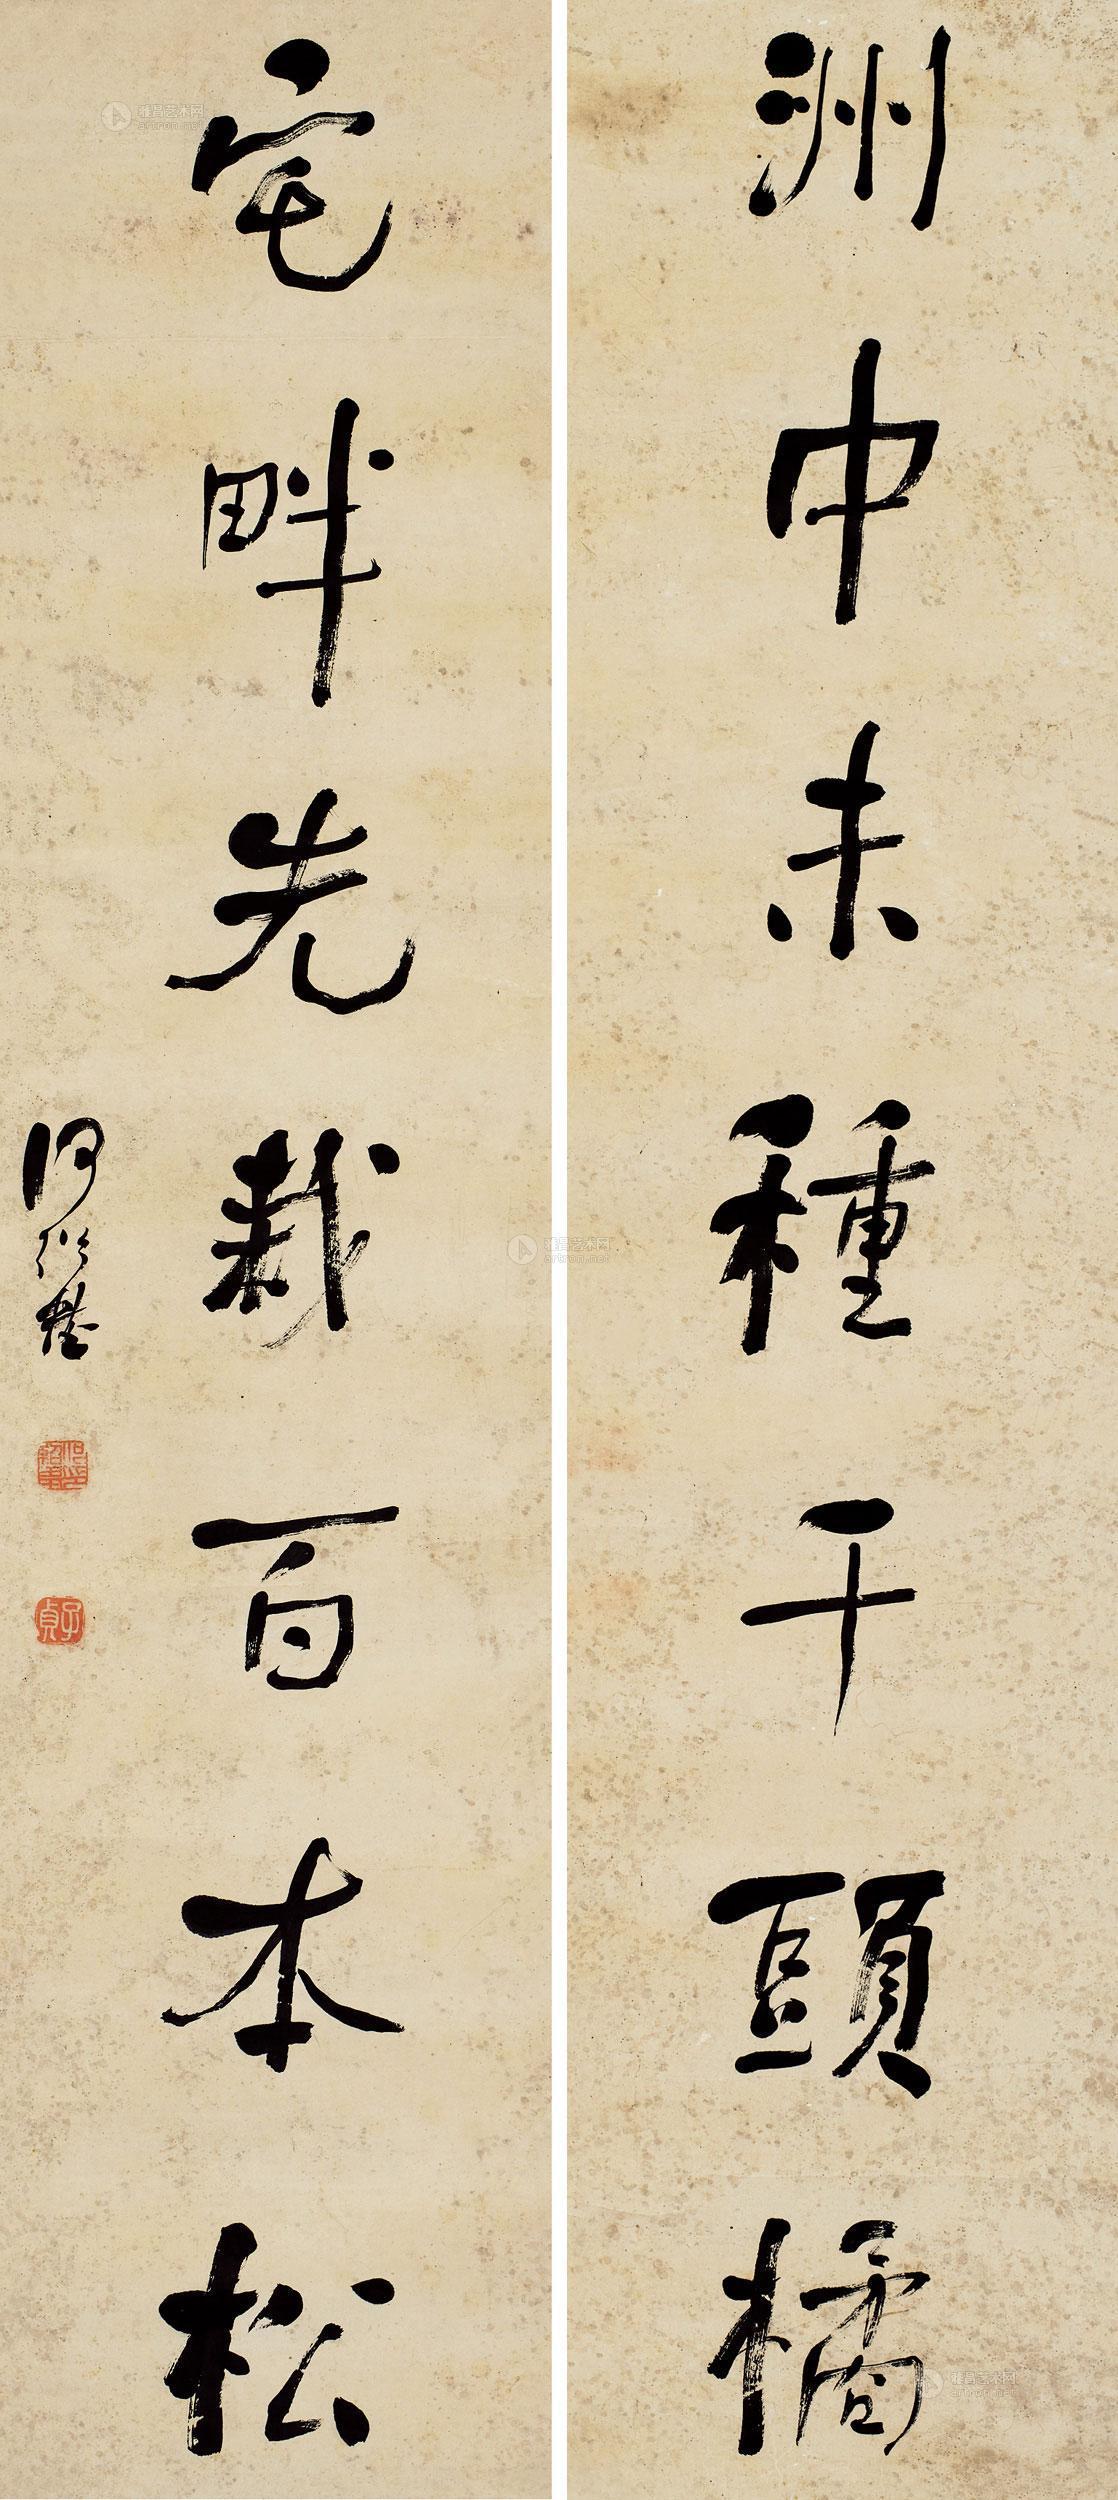 洲中未種千頭橘
宅畔先栽百本松
何紹基
子貞
雅昌艺术网
artron.net
雅昌艺术网
artron.net
雅昌艺术网
artron.net